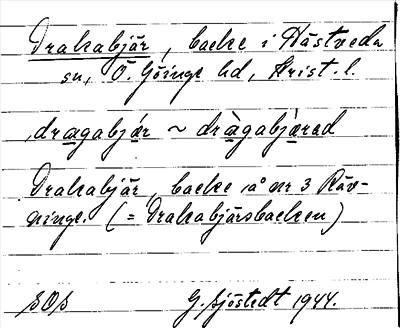 Drakabjär, backe i Hästveda
sn, Ö. Göinge hd, Krist. l.
dragabjár ~ dràgabjàrad
Drakabjär, backe å nr 3 Räv-
ninge. (= Drakabjärsbacken)
G. Sjöstedt 1944.